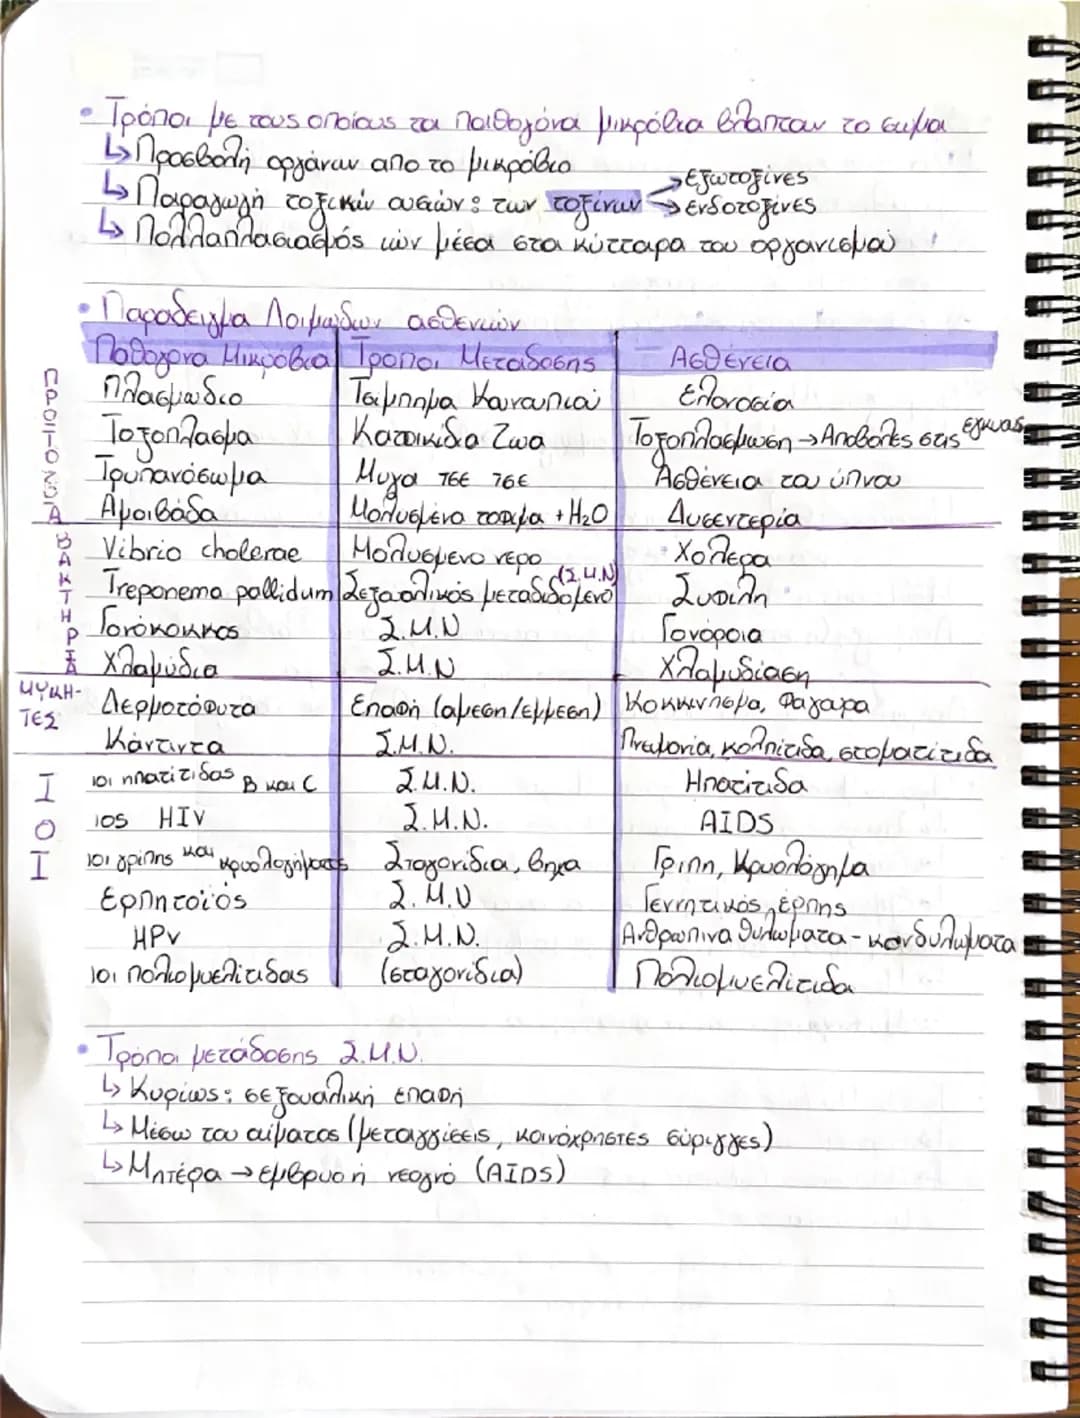 • Τρόποι με τους οποίους τα παθογόνα μικρόβια βλάπτουν το σώμα
↳ Προσβολή οργάνων απο το μικρόβιο
↳ Παραγωγή τοξικών ουσιών: των τοξίνων → εξωτοξίνες
→ ενδοτοξίνες
↳ Πολλαπλασιασμός ιών μέσα στα κύτταρα του οργανισμού
• Παραδειγμα Λοιμωδων ασθενειών
Παθογονα Μικρόβια Τροποι Μεταδοσης Ασθένεια
ΠΡΩΤΟΖΩΑ
Πλασμωδιο Τσιμπημα Κουνουπιού Ελονοσία
Τοξοπλασμα Κατοικιδα Ζωα Τοξοπλασμωση → Αποβολες στις εγκυες
Τρυπανόσωμα Μυγα τσε τσε Ασθένεια του ύπνου
Αμοιβάδα Μολυσμένα τροφιμα + H₂O Δυσεντερία
ΒΑΚΤΗΡΙΑ
Vibrio cholerae Μολυσμενο νερο Χολερα
Treponema pallidum Σεξουαλικός μεταδιδομενο (Σ.Μ.Ν) Συφιλη
Γονόκοκκος Σ.Μ.Ν Γονόροια
Χλαμύδια Σ.Μ.Ν Χλαμυδίαση
ΜΥΚΗ-
ΤΕΣ
Δερματόφυτα Επαφή (αμεση/εμμεση) Κοκκινησμα, Φαγουρα
Κάντιντα Σ.Μ.Ν. Πνευμονία, κολπίτιδα, στοματίτιδα
ΙΟΙ
ιοι ηπατίτιδας Β και C Σ.Μ.Ν. Ηπατίτιδα
ιος HIV Σ.Μ.Ν. AIDS
ιοι γρίπης και κρυολογήματος Σταγονίδια, βηχα Γριπη, Κρυολόγημα
Ερπητοϊός Σ.Μ.Ν Γεννητικός έρπης
HPV Σ.Μ.Ν. Ανθρωπινα θηλωματα - κονδυλωματα
ιοι πολιομυελίτιδας (σταγονίδια) Πολιομυελίτιδα
• Τρόποι μετάδοσης Σ.Μ.Ν.
↳ Κυρίως: σεξουαλική επαφή
↳ Μέσω του αίματος (μεταγγίσεις, κοινόχρηστες σύριγγες)
↳ Μητέρα → εμβρυο ή νεογνό (AIDS)